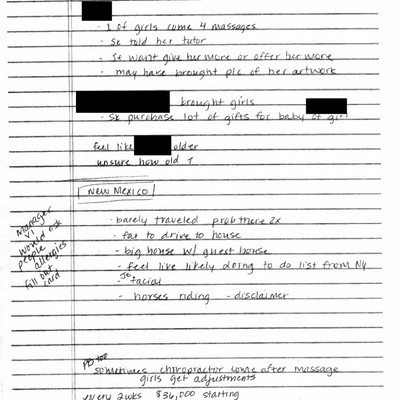 - 1 of girls come 4 massages
- SK told her tutor
- If want give her more or offer her more
- may have brought pic of her artwork
brought girls
- SK purchase lot of gifts for baby of girl
feel like older
unsure how old ↑
NEW MEXICO
- barely traveled prob there 2x
- far to drive to house
- big house w/ guest house
- feel like likely doing to do list from NY
- Je facial
- horses riding - disclaimer
Manager
VI
would ask
people
allergies
fill out
card
PB too
sometimes chiropractor come after massage
girls get adjustments
every 2wks $36,000 starting